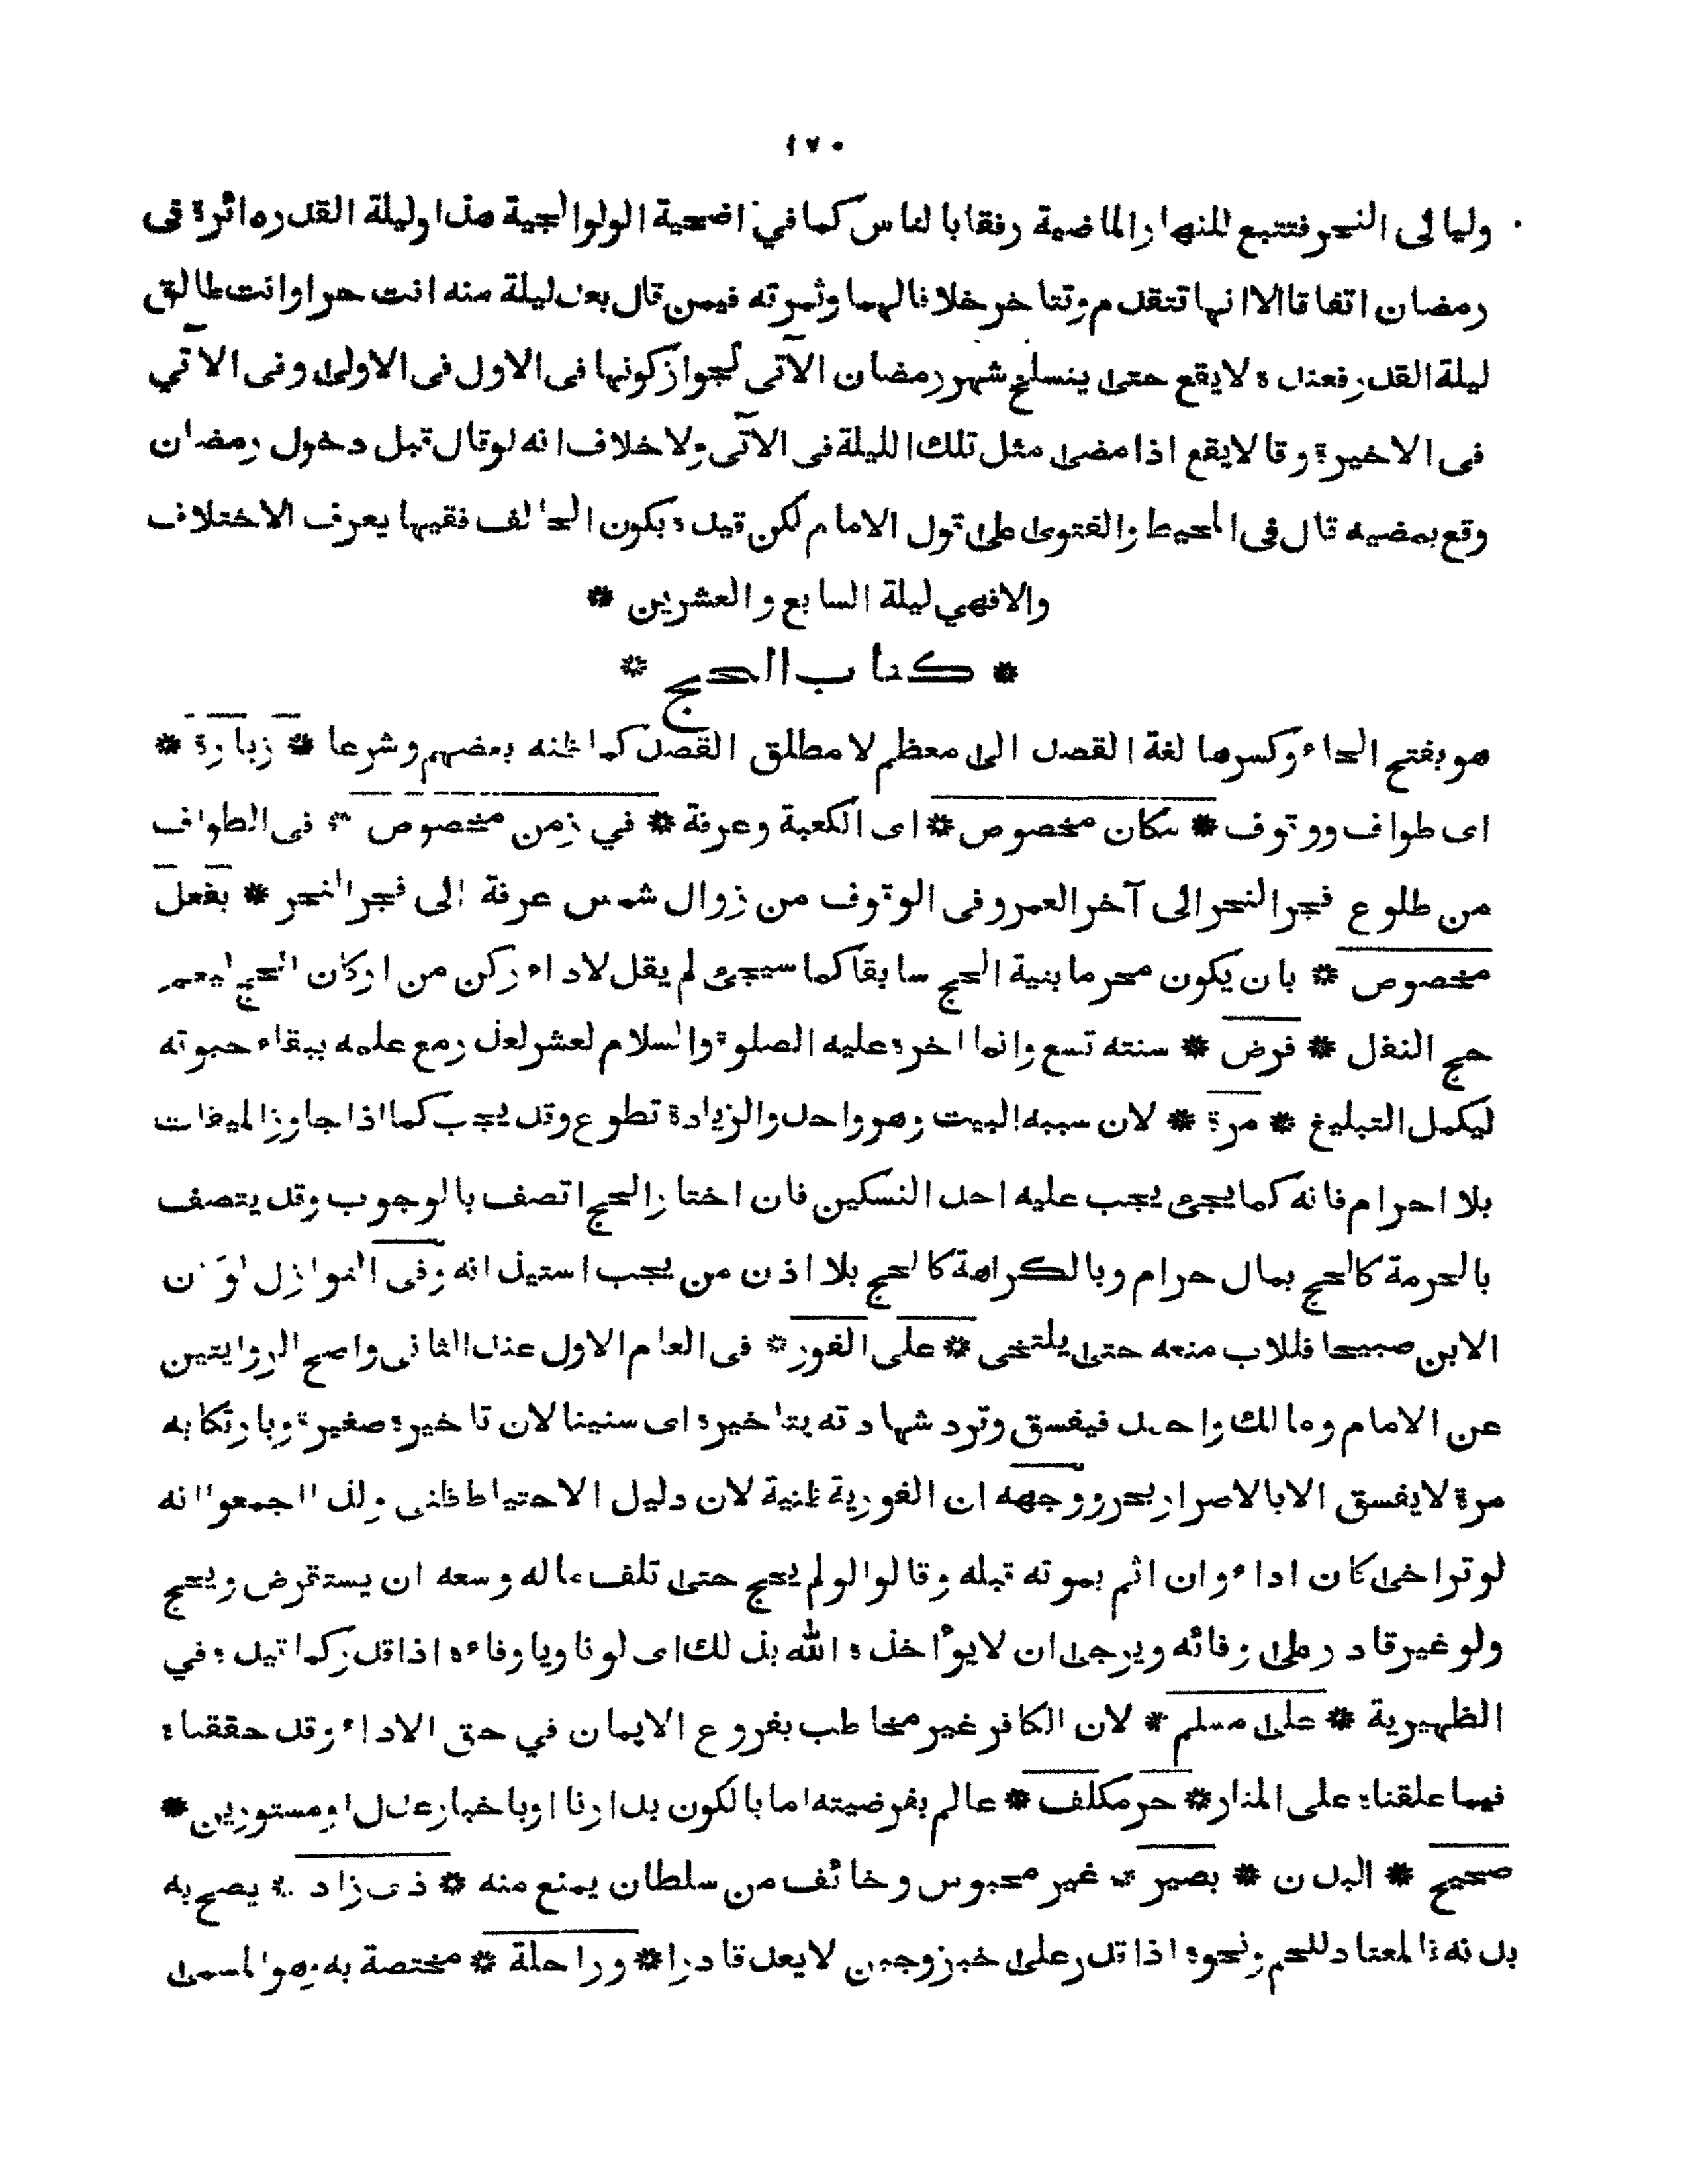 ١٧٠
وليالى النحر فتتبع للنهار الماضية رفقا بالناس كما في اضحية الولوالجية هذا وليلة القدر دائرة فى
رمضان اتفاقا الا انها تتقدم وتتاخر خلافا لهما وثمرته فيمن قال بعد ليلة منه انت حر او انت طالق
ليلة القدر فعنده لا يقع حتى ينسلخ شهر رمضان الآتى لجواز كونها فى الاول فى الاولى وفى الآتي
فى الاخيرة وقالا يقع اذا مضى مثل تلك الليلة فى الآتى ولا خلاف انه لو قال قبل دخول رمضان
وقع بمضيه قال فى المحيط والفتوى على قول الامام لكن قيده بكون الحالف فقيها يعرف الاختلاف
والا فهي ليلة السابع والعشرين *
* كتاب الحج *
هو بفتح الحاء وكسرها لغة القصد الى معظم لا مطلق القصد كما ظنه بعضهم وشرعا * زيارة *
اى طواف ووقوف * مكان مخصوص * اى الكعبة وعرفة * في زمن مخصوص * فى الطواف
من طلوع فجر النحر الى آخر العمر وفى الوقوف من زوال شمس عرفة الى فجر النحر * بفعل
مخصوص * بان يكون محرما بنية الحج سابقا كما سيجئ لم يقل لاداء ركن من اركان الحج ليعم
حج النفل * فرض * سنته تسع وانما اخره عليه الصلوة والسلام لعشر لعذر مع علمه ببقاء حيوته
ليكمل التبليغ * مرة * لان سببه البيت وهو واحد والزيادة تطوع وقد يجب كما اذا جاوز الميقات
بلا احرام فانه كما يجئ يجب عليه احد النسكين فان اختار الحج اتصف بالوجوب وقد يتصف
بالحرمة كالحج بمال حرام وبالكراهة كالحج بلا اذن من يجب استيذانه وفى النوازل لو كان
الابن صبيحا فللاب منعه حتى يلتحى * على الفور * فى العام الاول عند الثانى واصح الروايتين
عن الامام ومالك واحمد فيفسق وترد شهادته بتاخيره اى سنينا لان تاخيره صغيرة وبارتكابه
مرة لا يفسق الا بالاصرار بحر ووجهه ان الفورية ظنية لان دليل الاحتياط ظنى ولذا اجمعوا انه
لو تراخى كان اداء وان اثم بموته قبله وقالوا لو لم يحج حتى تلف ماله وسعه ان يستقرض ويحج
ولو غير قادر على وفائه ويرجى ان لا يؤاخذه الله بذلك اى لو ناويا وفاءه اذا قدر كما قيده في
الظهيرية * على مسلم * لان الكافر غير مخاطب بفروع الايمان في حق الاداء وقد حققناه
فيما علقناه على المنار * حر مكلف * عالم بفرضيته اما بالكون بدارنا او باخبار عدل او مستورين *
صحيح * البدن * بصير * غير محبوس وخائف من سلطان يمنع منه * ذى زاد * يصح به
بدنه فالمعتاد للحم ونحوه اذا قدر على خبز وجبن لا يعد قادرا * وراحلة * مختصة به وهو المسمى